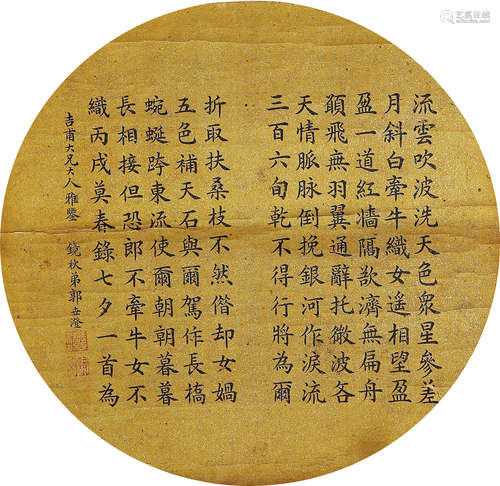 流雲吹波洗天色衆星參差
月斜白牽牛織女遙相望盈
盈一道紅墻隔欲濟無扁舟
願飛無羽翼通辭托微波各
天情脈脉倒挽銀河作淚流
三百六旬乾不得行將為爾
折取扶桑枝不然借却女媧
五色補天石與爾駕作長橋
蜿蜒跨東流使爾朝朝暮暮
長相接但恐郎不牽牛女不
織丙戌莫春錄七夕一首為
吉甫大兄大人雅鑒 鏡秋弟郭澄
艺狐在线